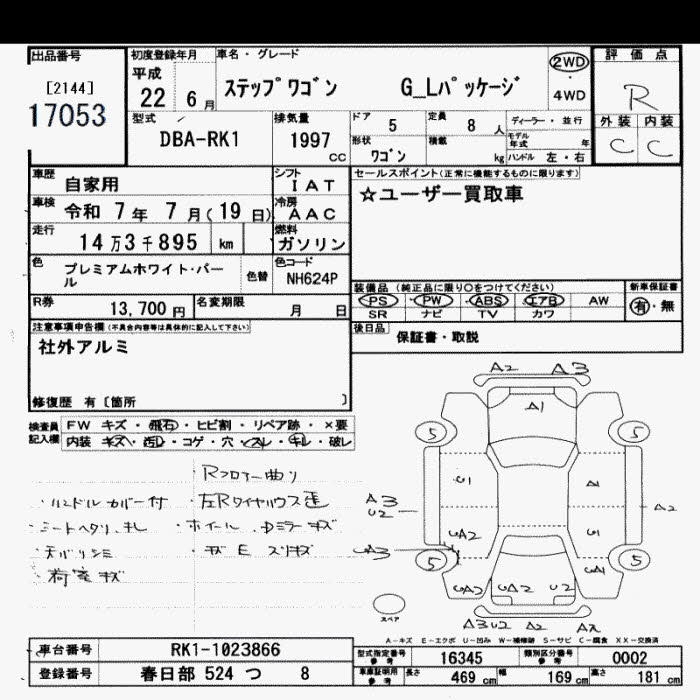 出品番号
[2144]
17053
初度登録年月
平成
22 6月
車名・グレード
ステップワゴン G_Lパッケージ
2WD
4WD
評価点
R
外装 内装
C C
型式
DBA-RK1
排気量
1997
CC
ドア 5
定員 8人
ディーラー・並行
形状
ワゴン
積載
kg
モデル
年式 年
ハンドル 左・右
車歴
自家用
シフト
IAT
車検 令和 7年 7月(19日)
冷房
AAC
走行
14万3千895 km
燃料
ガソリン
色
プレミアムホワイト・パール
色替
色コード
NH624P
R券
13,700円
名変期限
月 日
セールスポイント(正常に機能するものに限ります)
☆ユーザー買取車
装備品(純正品に限り○をつけてください)
PS PW ABS エアB AW
SR ナビ TV カワ
新車保証書
有・無
後日品
保証書・取説
注意事項申告欄(不具合内容等は具体的に記入して下さい)
社外アルミ
修復歴 有〔箇所 〕
検査員
記入欄
FW キズ・飛石・ヒビ割・リペア跡・×要
内装 キズ・汚レ・コゲ・穴・スレ・キレ・破レ
Rフロアー曲り
・ハンドルカバー付
・左Rタイヤハウス
・シートヘタリ、キレ
・ホイール、ドアミラーキズ
・天バリシミ
・荷室キズ
A2 A3
A1
5 5
U1 A1
A3
U2
A2
UA2
UA3
5 5
UA2 UA2 U2
A3U2 A2
スペア
A-キズ E-エクボ U-凹み W-補修跡 S-サビ C-腐食 XX-交換済
車台番号
RK1-1023866
登録番号
春日部 524 つ 8
型式指定番号
参考
16345
類別区分番号
参考
0002
車庫証明用
参考
長さ 469 cm
幅 169 cm
高さ 181 cm